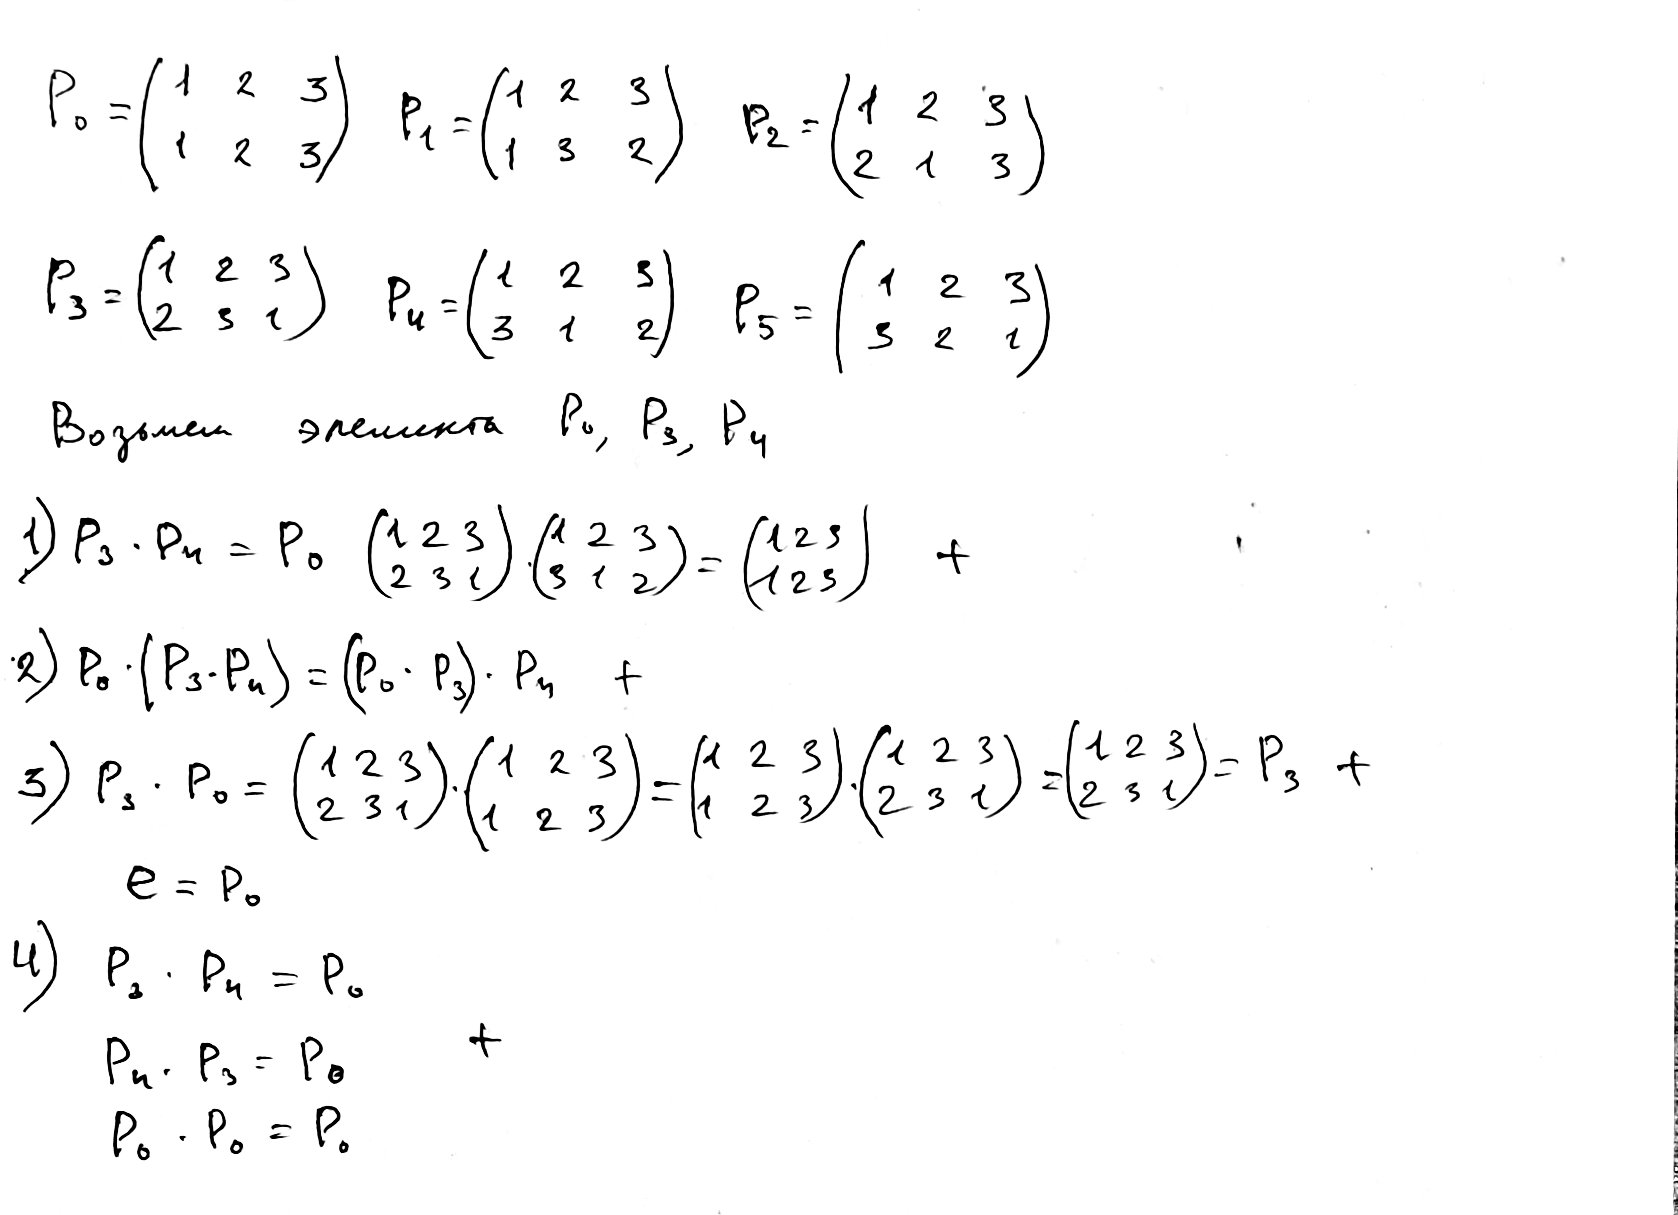 P₀ = (1 2 3 / 1 2 3) P₁ = (1 2 3 / 1 3 2) P₂ = (1 2 3 / 2 1 3)
P₃ = (1 2 3 / 2 3 1) P₄ = (1 2 3 / 3 1 2) P₅ = (1 2 3 / 3 2 1)
Возьмем элемента P₀, P₃, P₄
1) P₃ · P₄ = P₀ (1 2 3 / 2 3 1) · (1 2 3 / 3 1 2) = (1 2 3 / 1 2 3) +
2) P₀ · (P₃ · P₄) = (P₀ · P₃) · P₄ +
3) P₃ · P₀ = (1 2 3 / 2 3 1) · (1 2 3 / 1 2 3) = (1 2 3 / 1 2 3) · (1 2 3 / 2 3 1) = (1 2 3 / 2 3 1) = P₃ +
e = P₀
4) P₃ · P₄ = P₀
P₄ · P₃ = P₀ +
P₀ · P₀ = P₀